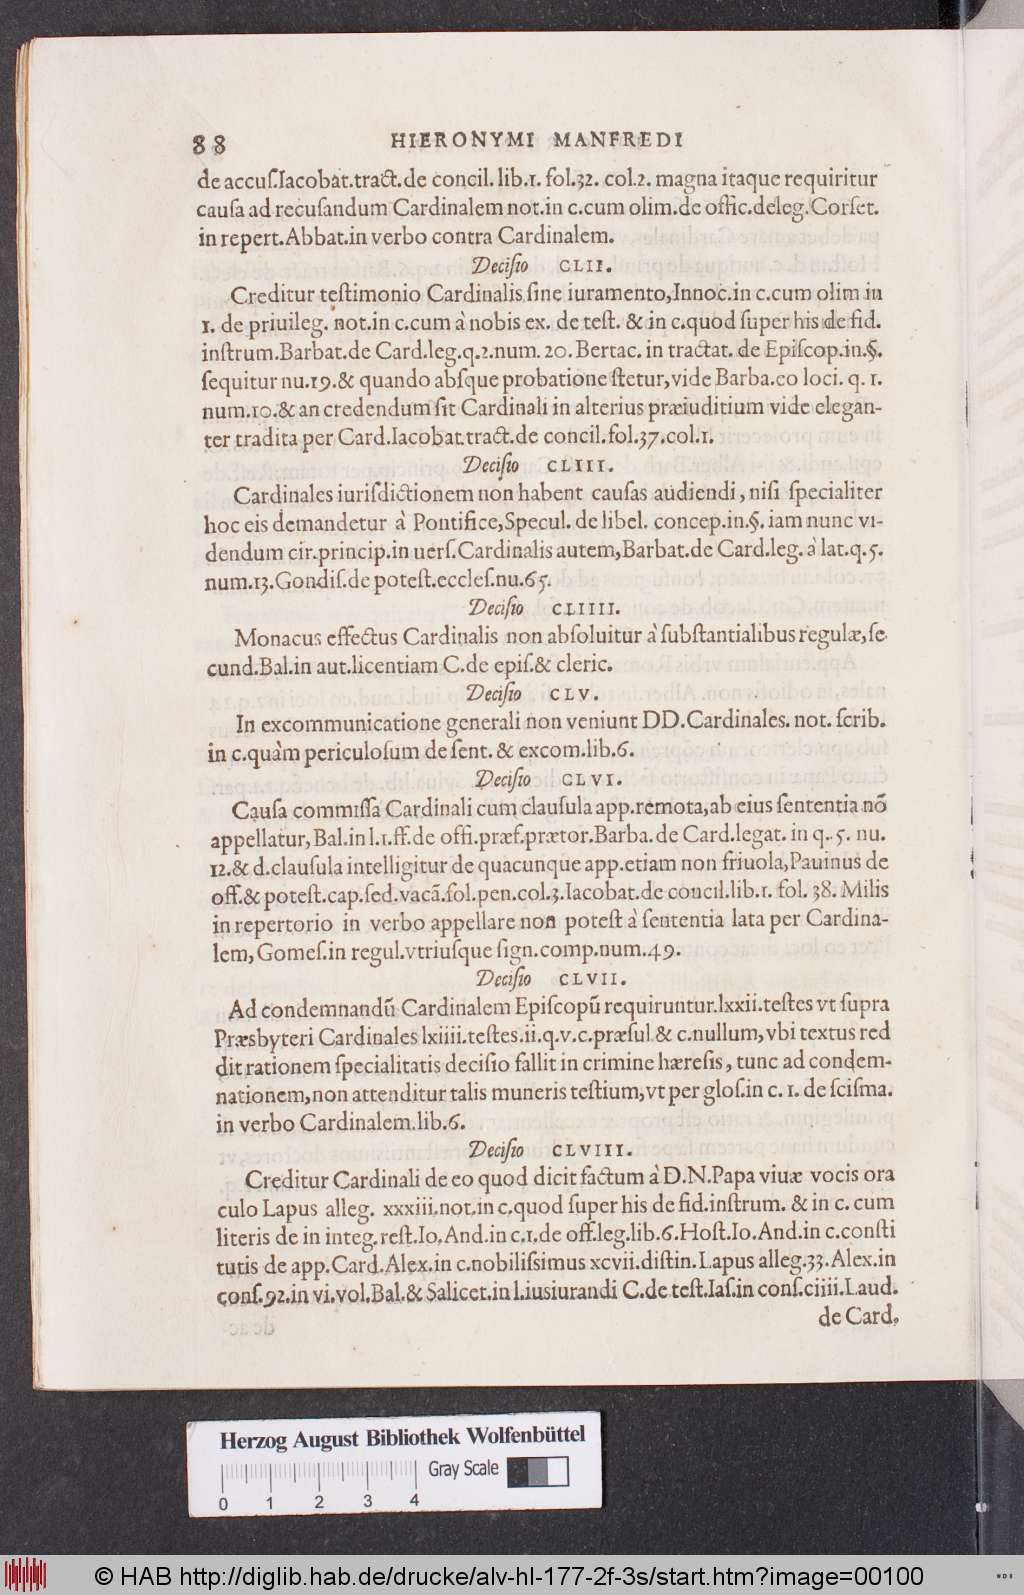 88 HIERONYMI MANFREDI
de accuſ.Iacobat.tract.de concil. lib.1. fol.32. col.2. magna itaque requiritur
cauſa ad recuſandum Cardinalem not.in c.cum olim.de offic.deleg.Corſet.
in repert.Abbat.in verbo contra Cardinalem.
Deciſio CLII.
Creditur teſtimonio Cardinalis ſine iuramento,Innoc.in c.cum olim in
1. de priuileg. not.in c.cum à nobis ex. de teſt. & in c.quod ſuper his de fid.
inſtrum.Barbat.de Card.leg.q.2.num. 20. Bertac. in tractat. de Epiſcop.in.§.
ſequitur nu.19.& quando abſque probatione ſtetur,vide Barba.eo loci. q. 1.
num.10.& an credendum ſit Cardinali in alterius præiuditium vide elegan-
ter tradita per Card.Iacobat.tract.de concil.fol.37.col.1.
Deciſio CLIII.
Cardinales iuriſdictionem non habent cauſas audiendi, niſi ſpecialiter
hoc eis demandetur à Pontifice,Specul. de libel. concep.in.§. iam nunc vi-
dendum cir.princip.in uerſ.Cardinalis autem,Barbat.de Card.leg. à lat.q.5.
num.13.Gondiſ.de poteſt.eccleſ.nu.65.
Deciſio CLIIII.
Monacus effectus Cardinalis non abſoluitur à ſubſtantialibus regulæ,ſe
cund.Bal.in aut.licentiam C.de epiſ.& cleric.
Deciſio CLV.
In excommunicatione generali non veniunt DD.Cardinales. not. ſcrib.
in c.quàm periculoſum de ſent. & excom.lib.6.
Deciſio CLVI.
Cauſa commiſſa Cardinali cum clauſula app.remota,ab eius ſententia nõ
appellatur, Bal.in l.1.ff.de offi.præf.prætor.Barba.de Card.legat. in q.5. nu.
12.& d.clauſula intelligitur de quacunque app.etiam non friuola,Pauinus de
off.& poteſt.cap.ſed.vacã.fol.pen.col.3.Iacobat.de concil.lib.1. fol. 38. Milis
in repertorio in verbo appellare non poteſt à ſententia lata per Cardina-
lem, Gomeſ.in regul.vtriuſque ſign.comp.num.49.
Deciſio CLVII.
Ad condemnandũ Cardinalem Epiſcopũ requiruntur.lxxii.teſtes vt ſupra
Præsbyteri Cardinales lxiiii.teſtes.ii.q.v.c.præſul & c.nullum, vbi textus red
dit rationem ſpecialitatis deciſio fallit in crimine hæreſis, tunc ad condem-
nationem,non attenditur talis muneris teſtium,vt per gloſ.in c. 1. de ſciſma.
in verbo Cardinalem.lib.6.
Deciſio CLVIII.
Creditur Cardinali de eo quod dicit factum à D.N.Papa viuæ vocis ora
culo Lapus alleg. xxxiii.not.in c.quod ſuper his de fid.inſtrum. & in c. cum
literis de in integ.reſt.Io.And.in c.1.de off.leg.lib.6.Hoſt.Io.And.in c.conſti
tutis de app.Card.Alex.in c.nobiliſsimus xcvii.diſtin.Lapus alleg.33.Alex.in
conſ.92.in vi.vol.Bal.& Salicet.in l.iusiurandi C.de teſt.Iaſ.in conſ.ciiii.Laud.
de Card.
Herzog August Bibliothek Wolfenbüttel
Gray Scale
0 1 2 3 4
© HAB http://diglib.hab.de/drucke/alv-hl-177-2f-3s/start.htm?image=00100